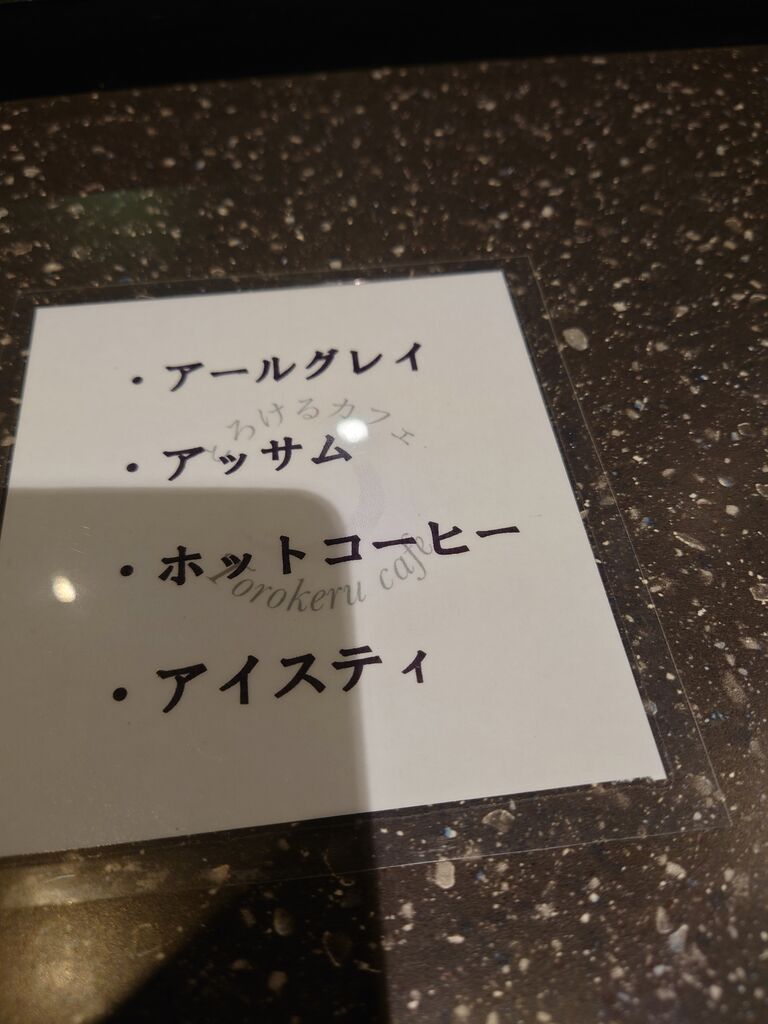 ・アールグレイ
とろけるカフェ
・アッサム
・ホットコーヒー
Torokeru cafe
・アイスティ